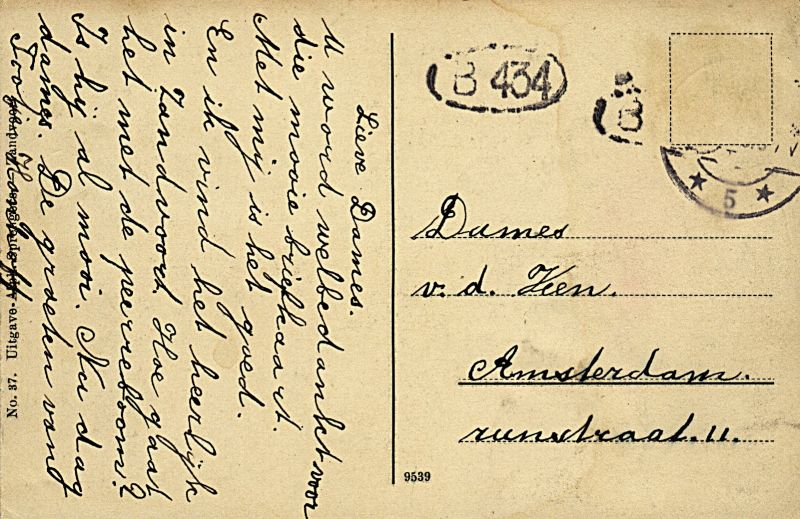 Lieve Dames.
U word welbedankt voor
die mooie briefkaart.
Met mij is het goed.
En ik vind het heerlijk
in Zandvoort. Hoe gaat
het met de peerreboom?
Is hij al mooi. Nu dag
dames. De groeten van
Tooj.
No. 37. Uitgave
B 434
B
5
Dames
v. d. Heen.
Amsterdam.
runstraat. 11.
9539